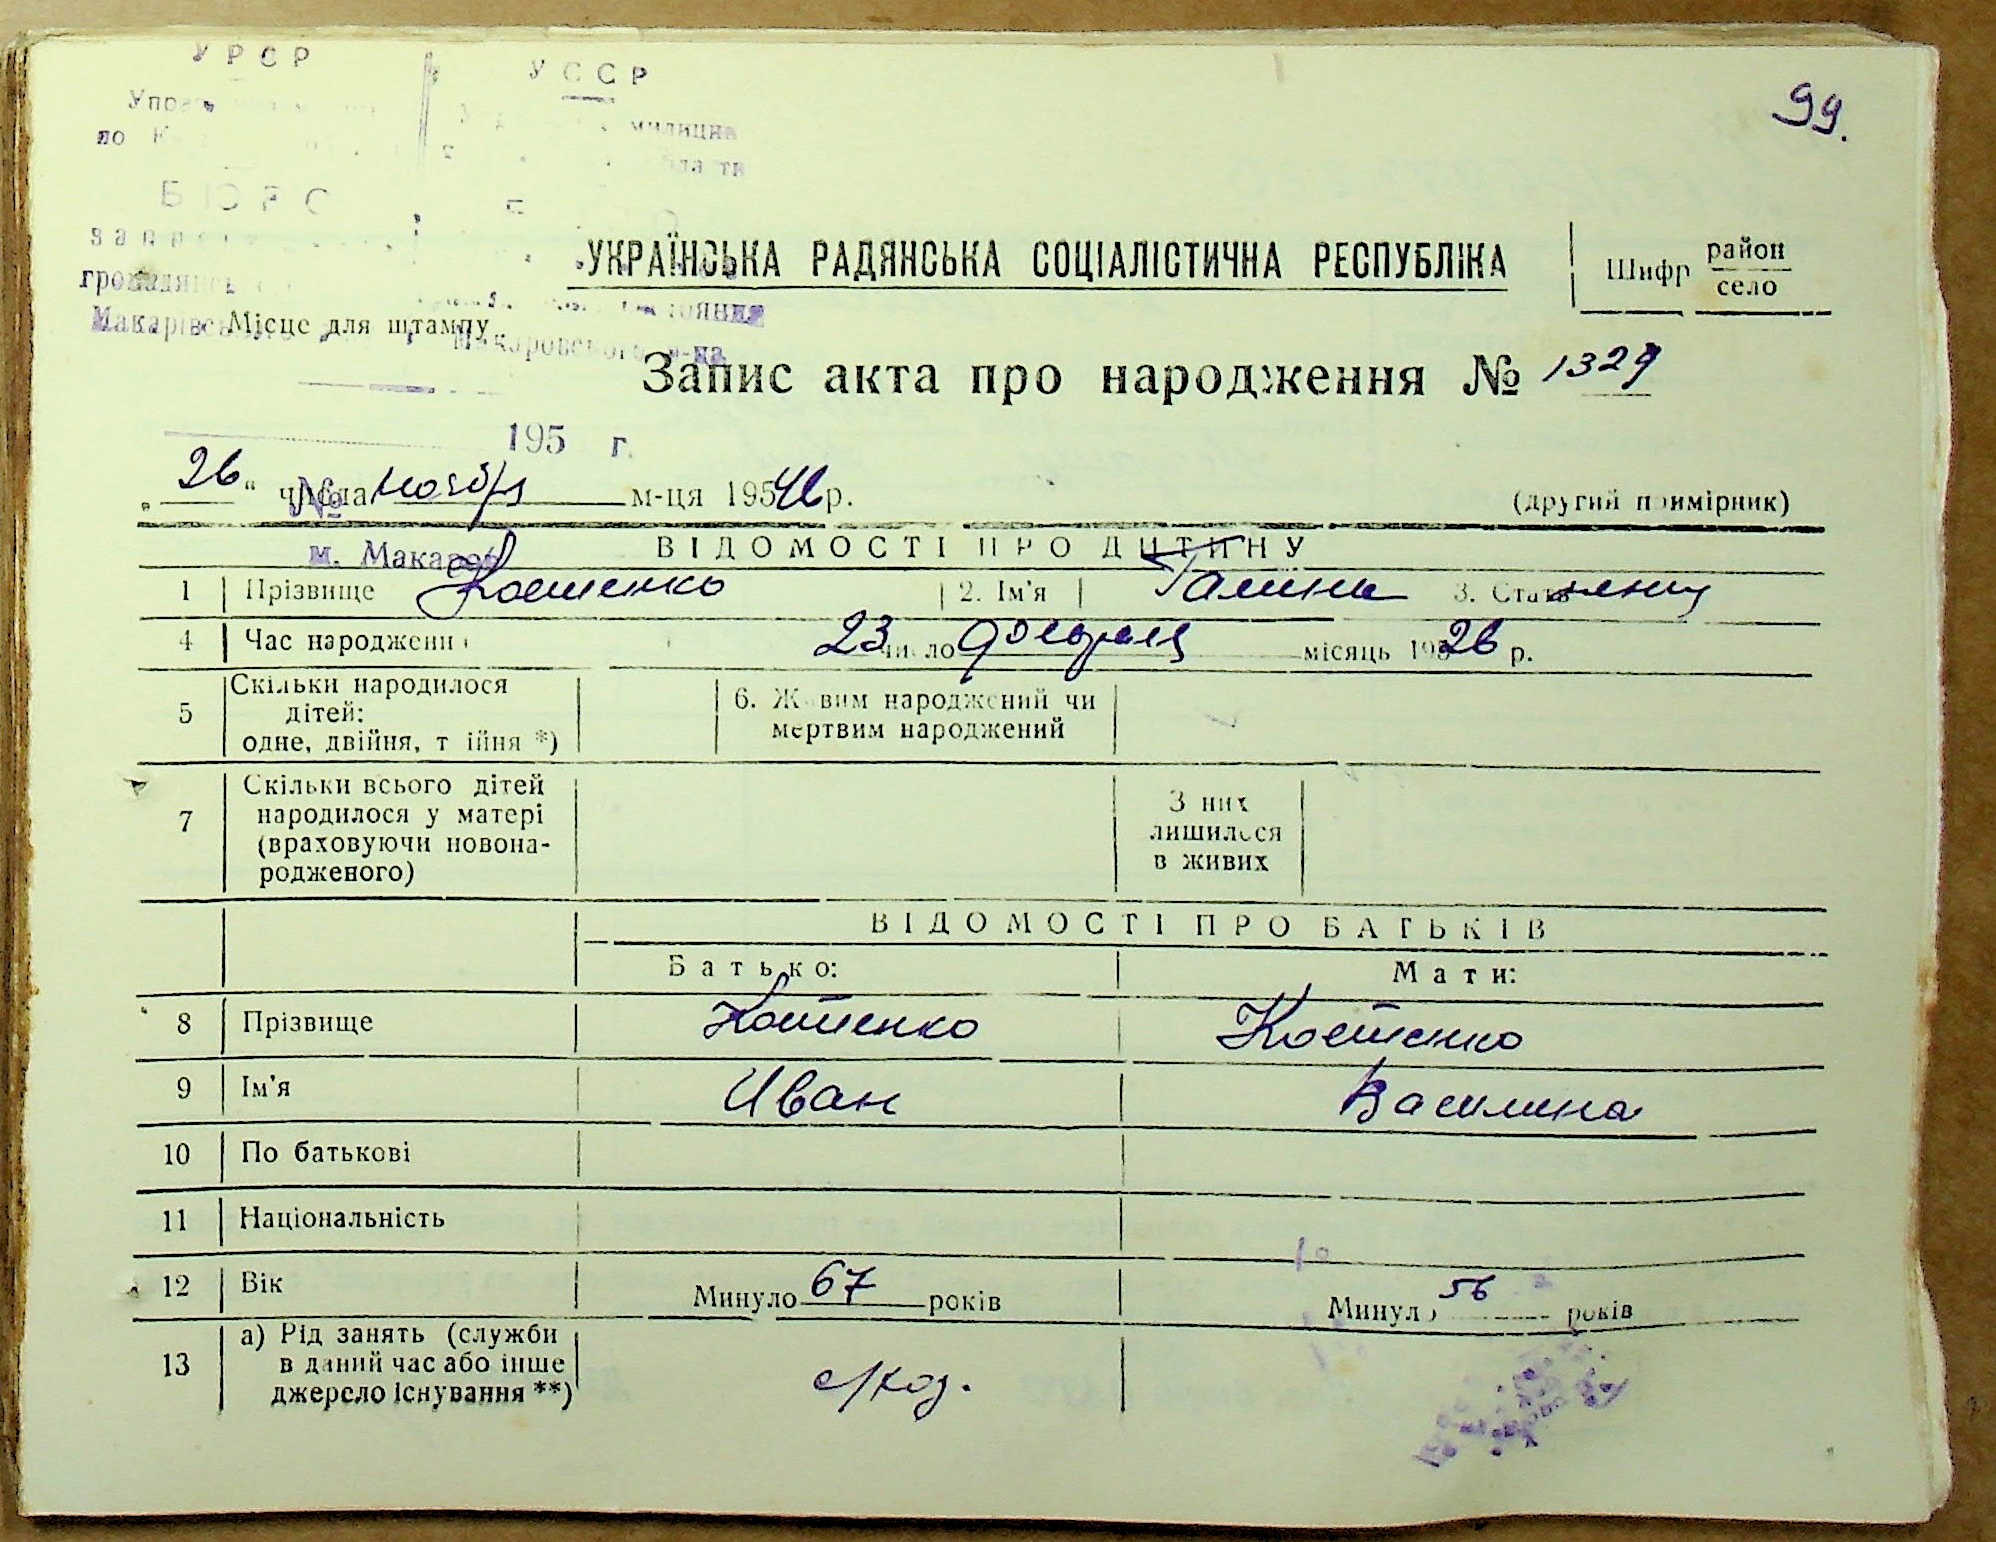 УРСР
УССР
милиции
по
99.
БЮРО
УКРАЇНСЬКА РАДЯНСЬКА СОЦІАЛІСТИЧНА РЕСПУБЛІКА
Шифр район
село
Місце для штампу
Макаровского р-на
Запис акта про народження № 1329
195 г.
„26“ числа ноября м-ця 19546р.
(другий примірник)
№
м. Макарів
ВІДОМОСТІ ПРО ДИТИНУ
1 Прізвище Костенко 2. Ім'я Галина 3. Стать женщ
4 Час народження 23 число февраля місяць 19526 р.
5 Скільки народилося
дітей:
одне, двійня, трійня *)
6. Живим народжений чи
мертвим народжений
7 Скільки всього дітей
народилося у матері
(враховуючи новона-
родженого)
З них
лишилося
в живих
ВІДОМОСТІ ПРО БАТЬКІВ
Батько: Мати:
8 Прізвище Костенко Костенко
9 Ім'я Иван Василина
10 По батькові
11 Національність
12 Вік Минуло 67 років Минуло 56 років
13 а) Рід занять (служби
в даний час або інше
джерело існування **)
с/хоз.